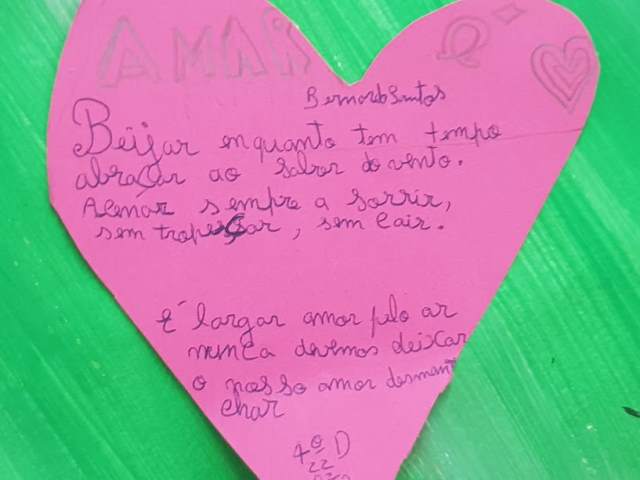 AMAR É
Bernardo Santos
Beijar enquanto tem tempo
abraçar ao sabor do vento.
Acenar sempre a sorrir,
sem tropeçar, sem cair.
É largar amor pelo ar
nunca devemos deixar
o nosso amor desman
char
4º D
22